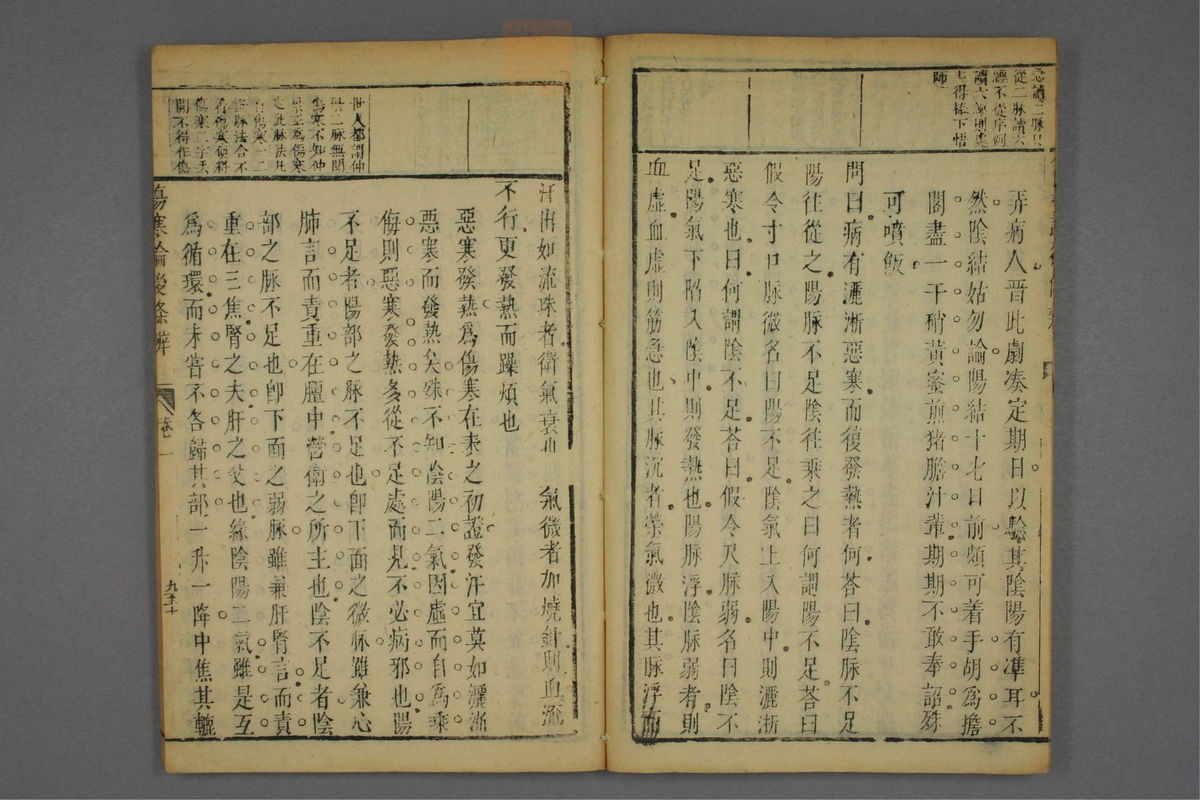 從二脉讀六
經不從序例
讀六經則處
上得棒下悟
師
弄病人晋此劇凑定期日以驗其陰陽有凖耳不
然陰結姑勿論陽結十七日前頗可着手胡爲擔
閣盡一干硝黃蜜煎猪膽汁輩期期不敢奉詔殊
可噴飯
問曰病有灑淅惡寒而復發熱者何荅曰陰脉不足
陽往從之陽脉不足陰往乘之曰何謂陽不足荅曰
假令寸口脉微名曰陽不足陰氣上入陽中則灑淅
惡寒也曰何謂陰不足荅曰假令尺脉弱名曰陰不
足陽氣下陷入陰中則發熱也陽脉浮陰脉弱者則
血虛血虛則筋急也其脉沉者榮氣微也其脉浮而
世人都謂仲
傷寒不知仲
景正爲傷寒
汗出如流珠者衛氣衰也 氣微者加燒針則血流
不行更發熱而躁煩也
惡寒發熱爲傷寒在表之初證發汗宜莫如灑淅
惡寒而發熱矣殊不知陰陽二氣因虛而自爲乘
侮則惡寒發熱多從不足處而見不必病邪也陽
不足者陽部之脉不足也卽下面之微脉雖兼心
肺言而責重在膻中營衛之所主也陰不足者陰
部之脉不足也卽下面之弱脉雖兼肝腎言而責
重在三焦腎之夫肝之父也緣陰陽二氣雖是互
爲循環而未嘗不各歸其部一升一降中焦其轆
傷寒論後條辨
卷一